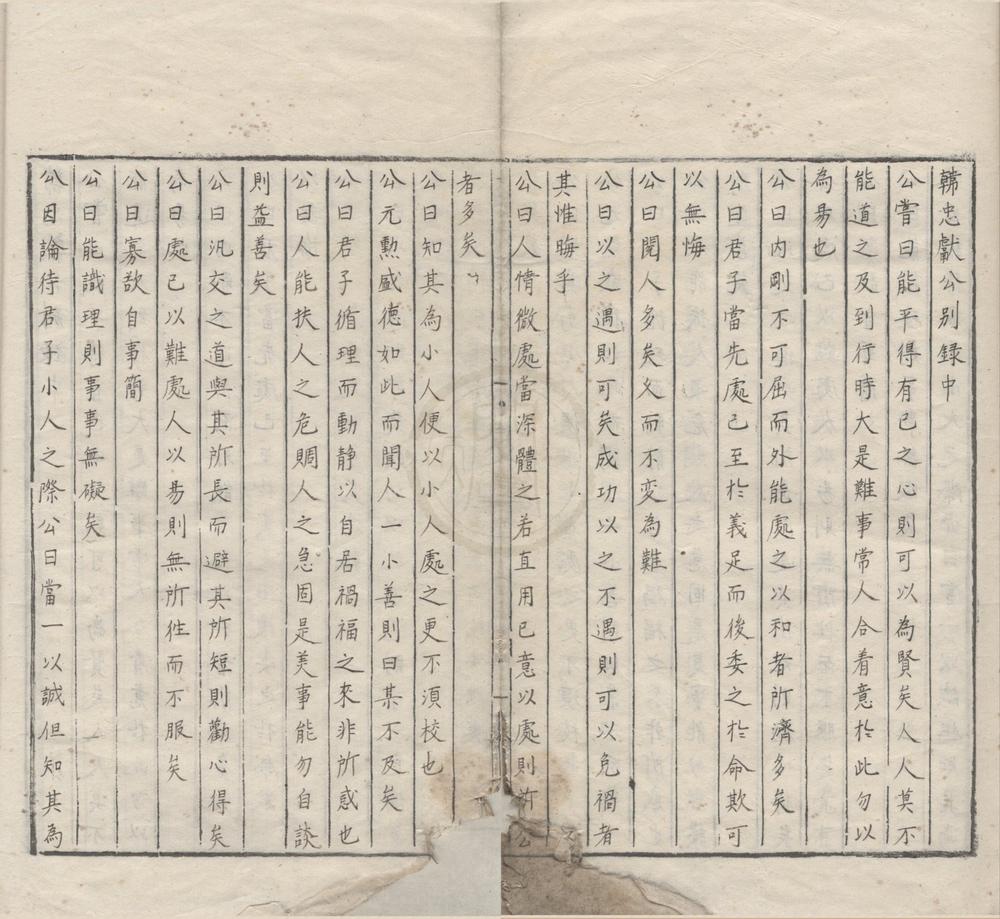 韓忠獻公别録中
公嘗曰能平得有已之心則可以為賢矣人人莫不
能道之及到行時大是難事常人合着意於此勿以
為易也
公曰内剛不可屈而外能處之以和者所濟多矣
公曰君子當先處已至於義足而後委之於命欺可
以無悔
公曰閱人多矣久而不变為難
公曰以之遇則可矣成功以之不遇則可以免禍者
其惟晦乎
公曰人情微處當深體之若直用已意以處則許公
者多矣
公曰知其為小人便以小人處之更不須校也
公元勲盛德如此而聞人一小善則曰某不及矣
公曰君子循理而動静以自居禍福之來非所惑也
公曰人能扶人之危賙人之急固是美事能勿自談
則益善矣
公曰汎交之道與其所長而避其所短則勸心得矣
公曰處已以難處人以易則無所徃而不服矣
公曰寡欲自事簡
公曰能識理則事事無礙矣
公因論待君子小人之際公曰當一以誠但知其為